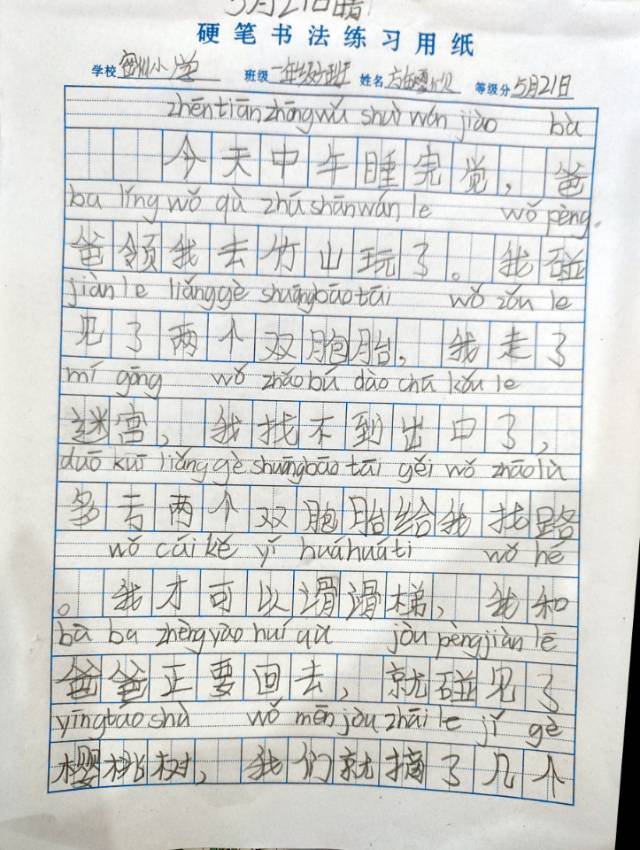 5月21日晴
硬笔书法练习用纸
学校 小学 班级 一年级 班 姓名 方 等级分 5月21日
zhēntiānzhōngwǔ shuì wán jiào bà
今天中午睡完觉，爸
ba lǐng wǒ qù zhúshānwán le wǒ pèng
爸领我去竹山玩了。我碰
jiàn le liǎnggè shuāngbāotāi wǒ zǒu le
见了两个双胞胎，我走了
mí gōng wǒ zhǎo bú dào chū kǒu le
迷宫，我找不到出口了，
duō kuī liǎnggè shuāngbāotāi gěi wǒ zhǎolù
多亏两个双胞胎给我找路
wǒ cái kě yǐ huáhuátī wǒ hé
。我才可以滑滑梯，我和
bà ba zhèngyào huí qù jòu pèngjiàn le
爸爸正要回去，就碰见了
yīngtao shù wǒ mēn jòu zhāi le jǐ gè
樱桃树，我们就摘了几个